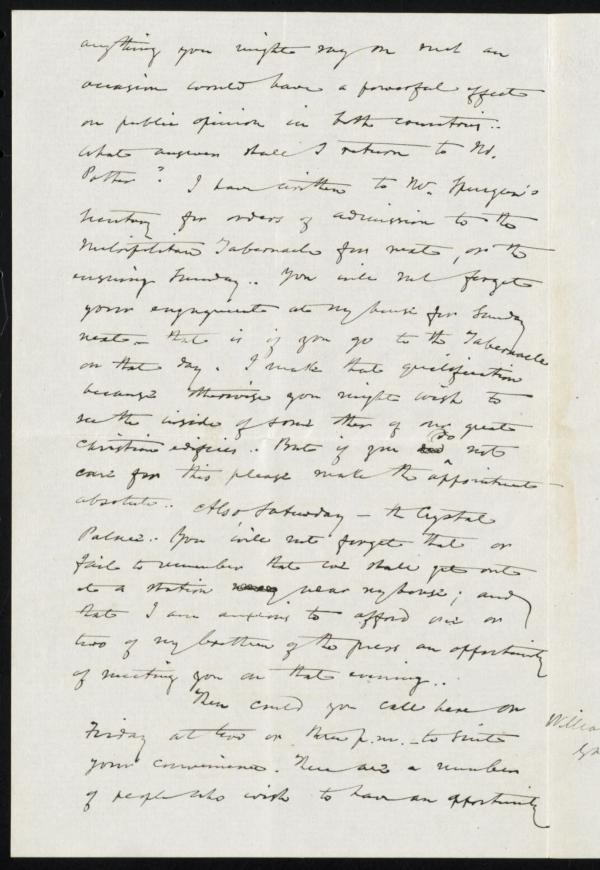 anything you might say on such an
occasion would have a powerful effect
on public opinion in both countries..
What answer shall I return to Mr.
Potter? I have written to Mr. Spurgeon's
Secretary for orders of admission to the
Metropolitan Tabernacle for next, or the
ensuing Sunday.. You will not forget
your engagement at my house for Sunday
next - that is if you go to the Tabernacle
on that day. I make that qualification
because otherwise you might wish to
see the inside of some other of our great
Christian edifices.. But if you do not
care for this please make the appointment
absolute.. Also Saturday - the Crystal
Palace.. You will not forget that or
fail to remember that we shall get out
at a station near my house; and
that I am anxious to afford one or
two of my brethren of the press an opportunity
of meeting you on that evening..
Then could you call here on
Friday at two or three p.m. - to suit
your convenience. There are a number
of people who wish to have an opportunity